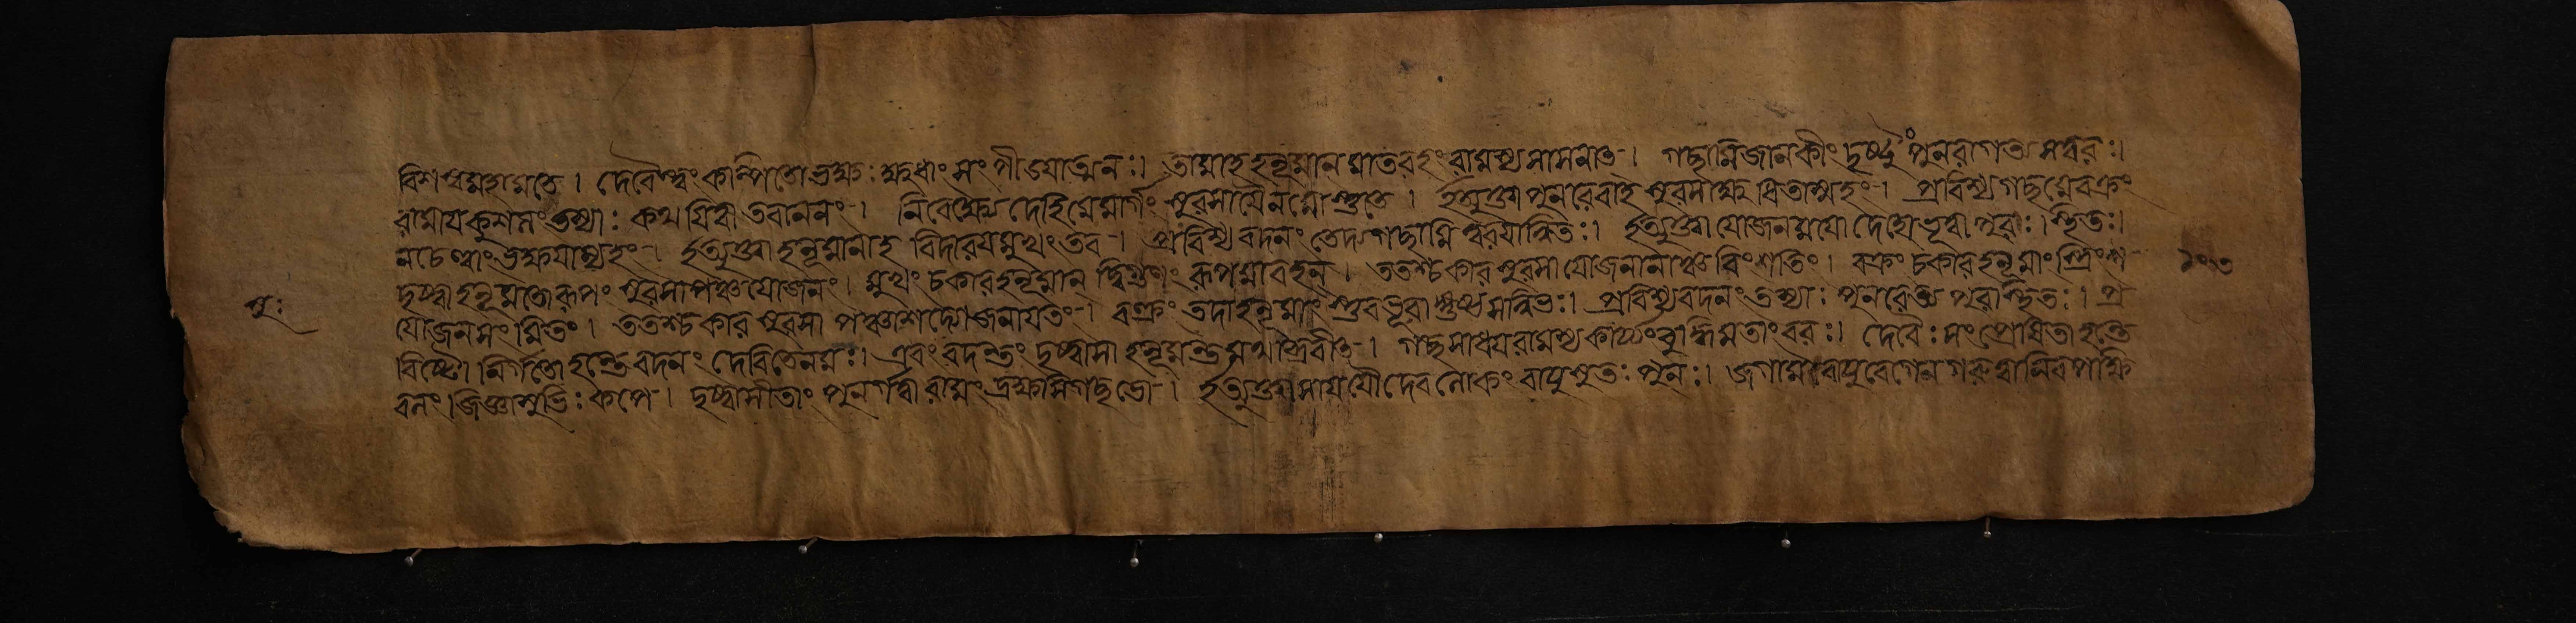 বিশস্বমহামতে । দেবৈস্ত্বং কল্পিতো ভক্ষঃ ক্ষুধাং সংপীডযাত্মনঃ । তামাহ হনূমান মাতরহং রামস্য সাসনাত্ । গছামি জানকীং দৃষ্টুং পুনরাগত্য সত্বরঃ ।
রামায কুশলং তস্যাঃ কথযিত্বা তবাননং । নিবেক্ষ্যে দেহি মে মার্গং সুরসাযৈ নমোস্তুতে । ইত্যুক্তা পুনরেবাহ সুরসা ক্ষুধিতাস্ম্যহং । প্রবিশ্য গছ মে বক্ত্রং
নচেত্ত্বাং ভক্ষযাম্যহং । ইত্যুক্তো হনূমানাহ বিদারয মুখং তব । প্রবিশ্য বদনং তেদ্য গছামি ত্বরযান্বিতঃ । ইত্যুক্তা যোজনমযো দেহো ভূত্বা পুরঃ স্থিতঃ ।
দৃষ্ট্বা হনূমতো রূপং সুরসা পঞ্চযোজনং । মুখং চকার হনূমান দ্বিগুণং রূপমাবহন্ । ততশ্চকার সুরসা যোজনানাঞ্চ বিংশতিং । বক্ত্রং চকার হনূমাংস্ত্রিংশ
যোজনসংমিতং । ততশ্চকার সুরসা পঞ্চাশদ্যোজনাযতং । বক্ত্রং তদা হনূমাংস্তু বভূবাঙ্গুষ্ঠসন্নিভঃ । প্রবিশ্য বদনং তস্যাঃ পুনরেত্য পুরঃ স্থিতঃ । প্র
বিষ্টো নির্গতোহন্তে বদনং দেবি তে নমঃ । এবং বদন্তং দৃষ্ট্বা সা হনূমন্তমথাব্রবীত্ । গছ সাধয রামস্য কার্য্যং বুদ্ধিমতাং বর । দেবৈঃ সংপ্রেষিতাহন্তে
বলং জিজ্ঞাসুভিঃ কপে । দৃষ্ট্বা সীতাং পুনর্গত্বা রামং দ্রক্ষ্যসি গছ ভো । ইত্যুক্ত্বা সা যযৌ দেবলোকং বাযুসুতঃ পুনঃ । জগাম বাযুবেগেন গরুত্মানিব পক্ষি
সুঃ